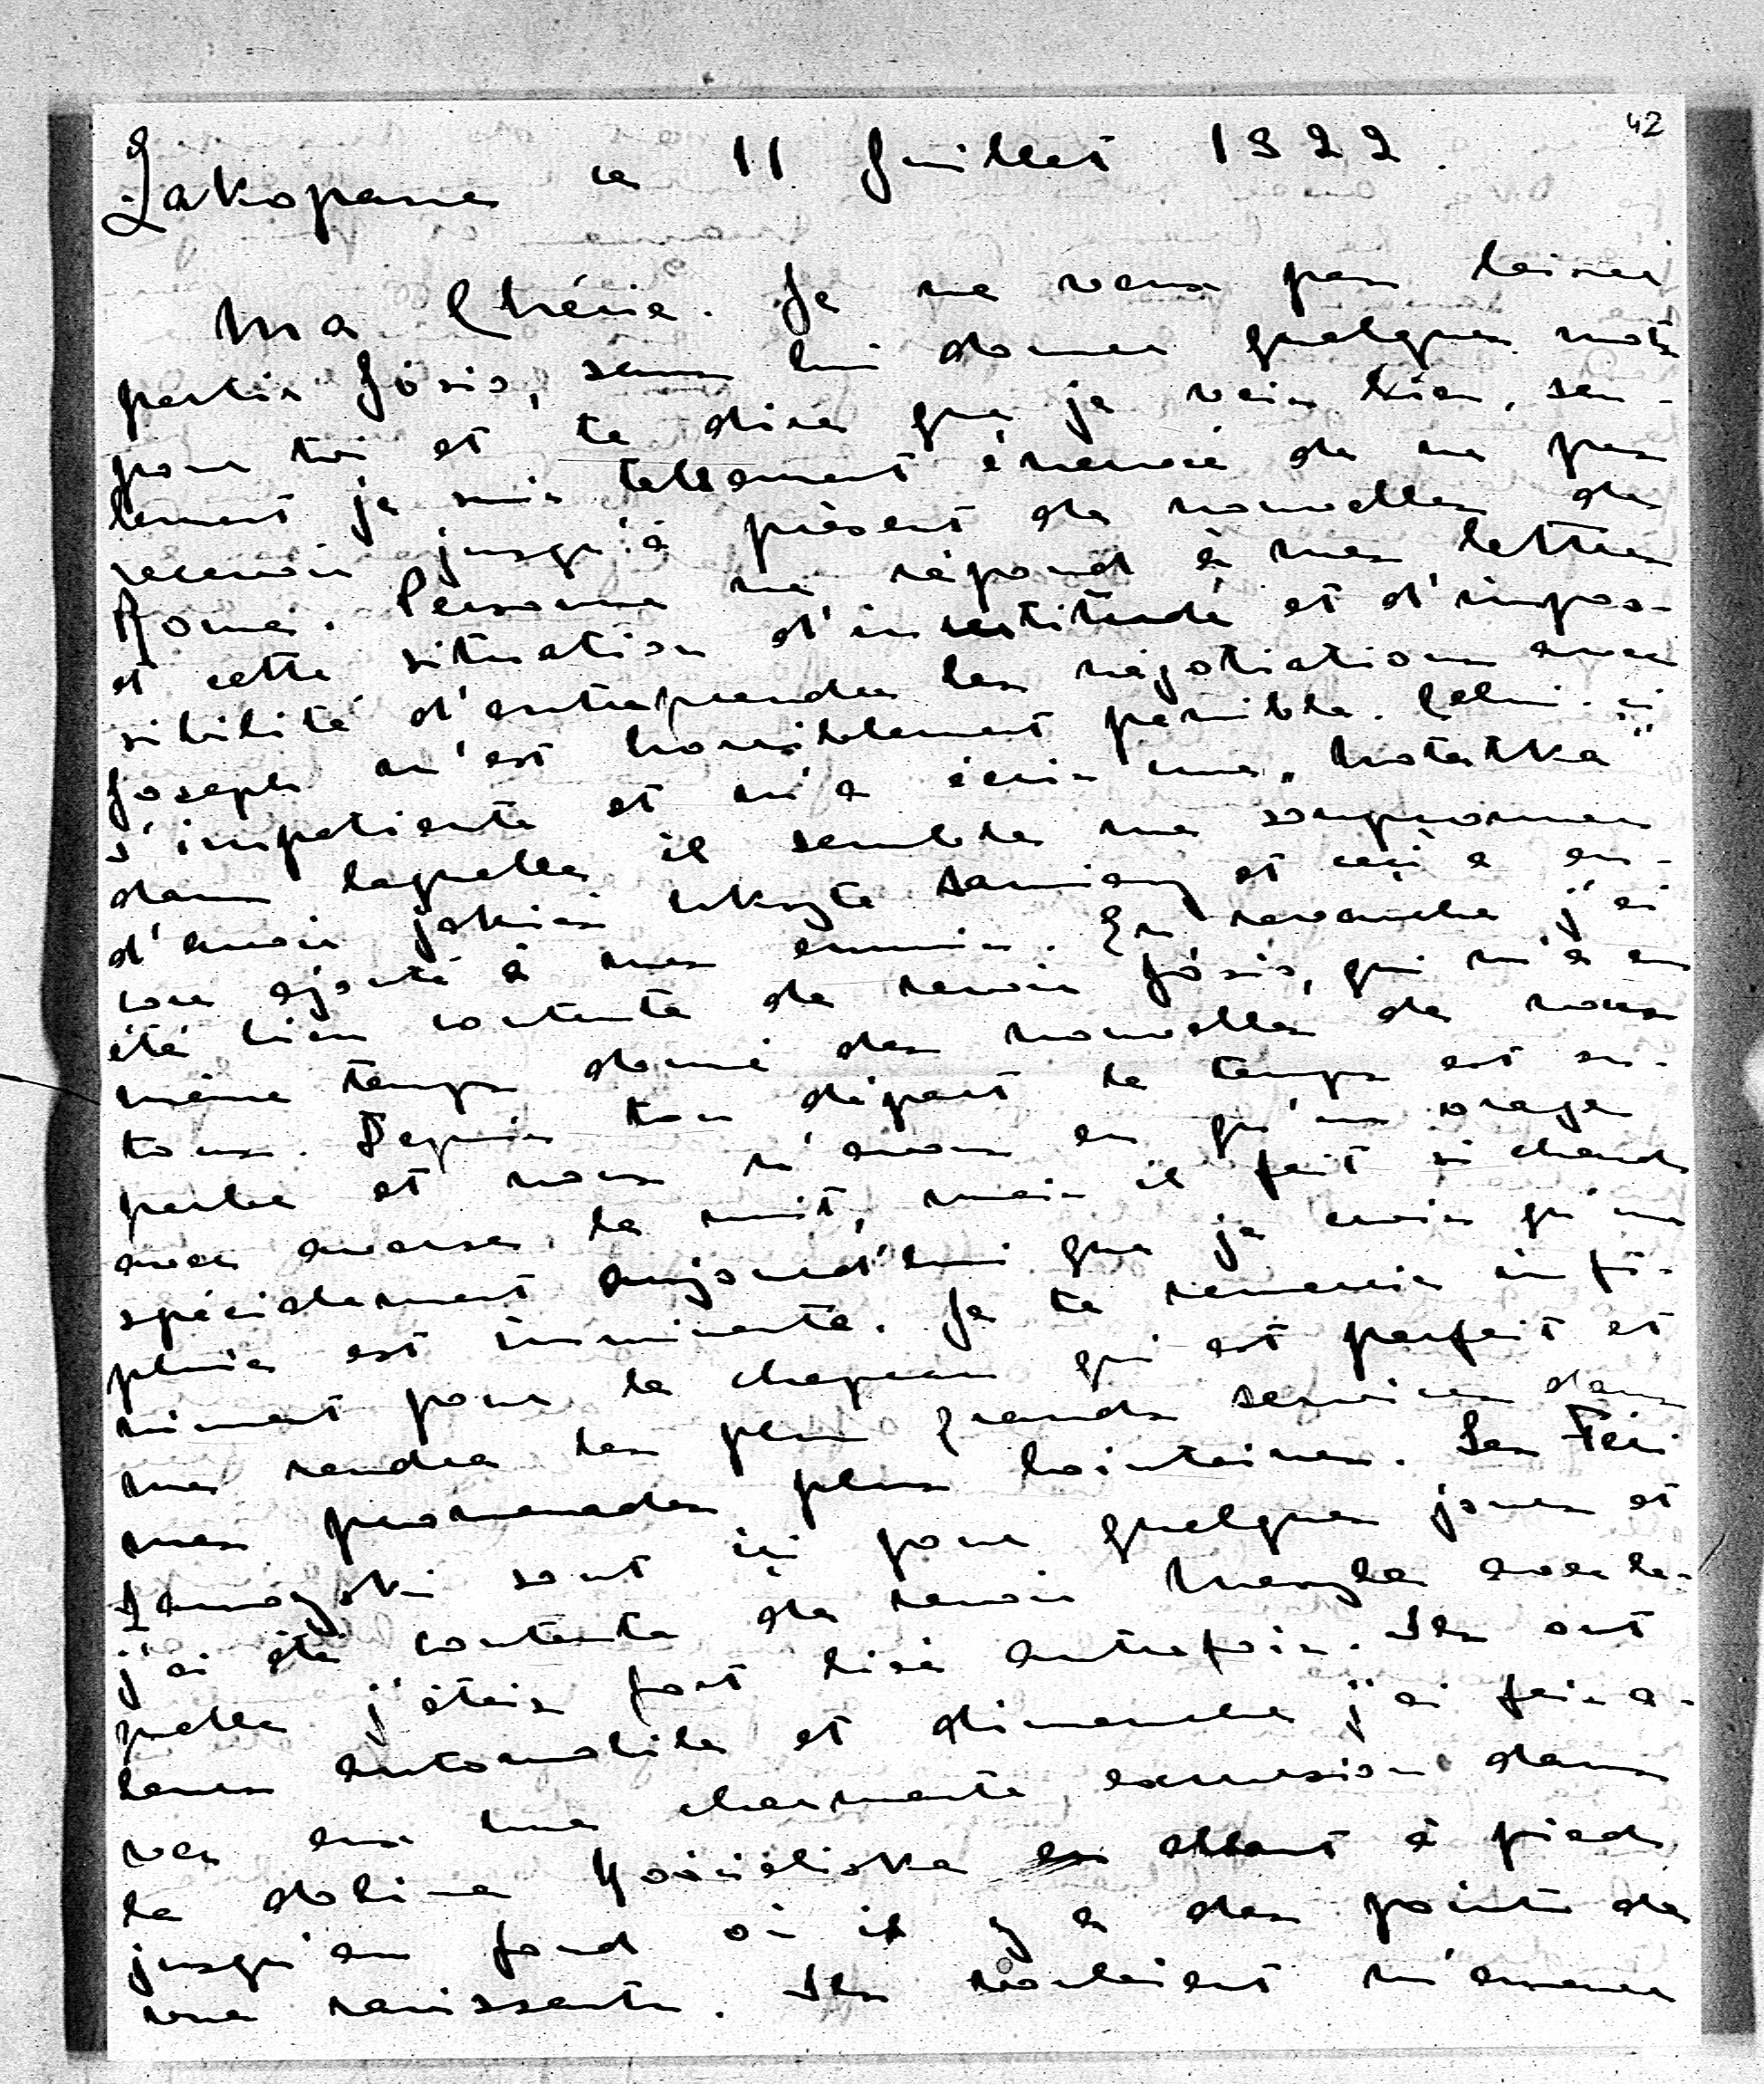 42
Zakopane ce 11 Juillet 1922.
Ma Chérie. Je ne veux pas laisser
partir Józio, sans lui donner quelques mots
pour toi et te dire que je vais bien, seu-
lement je suis tellement énervée de ne pas
recevoir jusqu'à présent de nouvelles de
Rome. Personne ne répond à mes lettres
et cette situation d'incertitude et d'impos-
sibilité d'entreprendre les négotiations avec
Joseph m'est horriblement pénible. Celui-ci
s'impatiente et m'a écris une „notatka"
dans laquelle il semble me soupçonner
d'avoir jakieś ukryte zamiary et ceci a en-
core ajouté à mes ennuis. En revanche j'ai
été bien contente de revoir Józio, qui m'a en
même temps donné des nouvelles de vous
tous. Depuis ton départ le temps est su-
perbe et nous n'avons eu qu'un orage
avec averse la nuit, mais il fait si chaud
spécialement aujourd'hui que je crois qu'une
pluie est imminente. Je te remercie infi-
niment pour le chapeau qui est parfait et
me rendra les plus grands services dans
mes promenades plus lointaines. Les Feri
Zamoyski sont ici pour quelques jours et
j'ai été contente de revoir avec la-
quelle j'étais fort liée autrefois. Ils ont
leur automobile et dimanche j'ai fais a-
vec eux une charmante excursion dans
la dolina Kościeliska en allant à pied
jusqu'au fond où il y a des points de
vue ravissants. Ils voulaient m'emmener